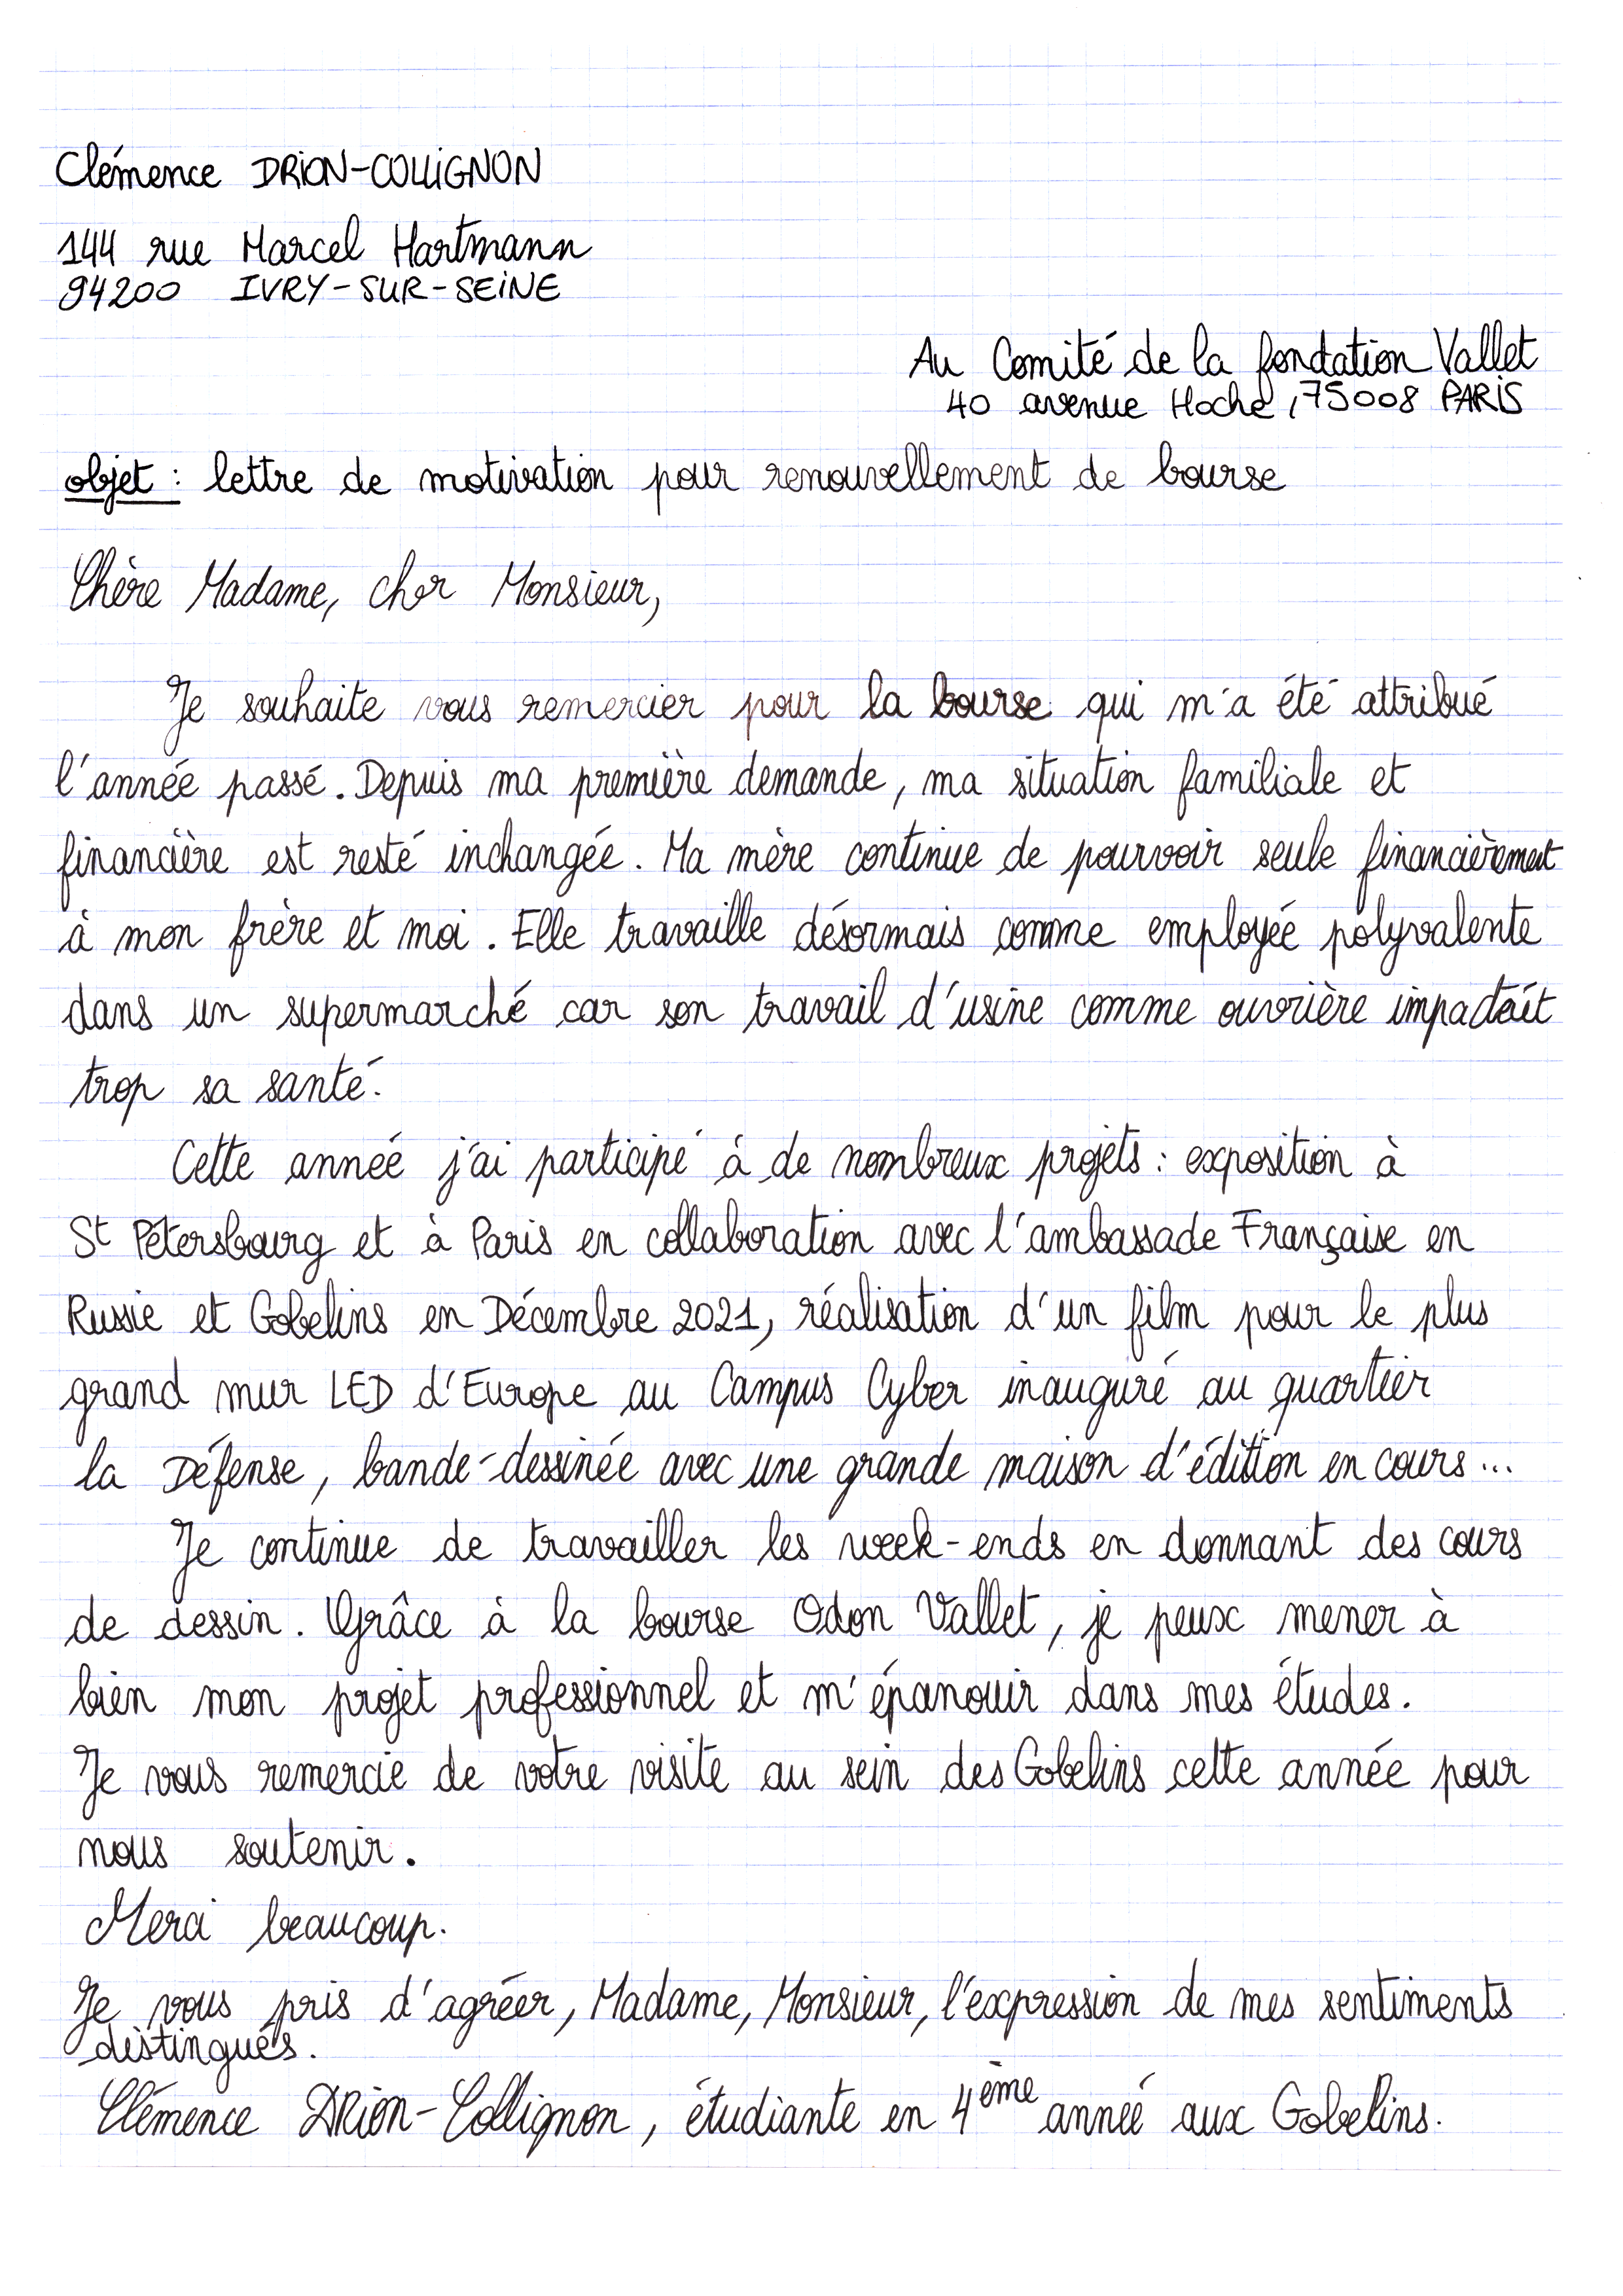 Clémence DRION-COLLIGNON
144 rue Marcel Hartmann
94200 IVRY-SUR-SEINE
Au Comité de la fondation Vallet
40 avenue Hoche, 75008 PARIS
objet : lettre de motivation pour renouvellement de bourse
Chère Madame, cher Monsieur,
Je souhaite vous remercier pour la bourse qui m'a été attribué
l'année passé. Depuis ma première demande, ma situation familiale et
financière est resté inchangée. Ma mère continue de pourvoir seule financièrement
à mon frère et moi. Elle travaille désormais comme employée polyvalente
dans un supermarché car son travail d'usine comme ouvrière impactait
trop sa santé.
Cette année j'ai participé à de nombreux projets : exposition à
St Pétersbourg et à Paris en collaboration avec l'ambassade Française en
Russie et Gobelins en Décembre 2021, réalisation d'un film pour le plus
grand mur LED d'Europe au Campus Cyber inauguré au quartier
la Défense, bande-dessinée avec une grande maison d'édition en cours...
Je continue de travailler les week-ends en donnant des cours
de dessin. Grâce à la bourse Odon Vallet, je peux mener à
bien mon projet professionnel et m'épanouir dans mes études.
Je vous remercie de votre visite au sein des Gobelins cette année pour
nous soutenir.
Merci beaucoup.
Je vous pris d'agréer, Madame, Monsieur, l'expression de mes sentiments
distingués.
Clémence DRion-Collignon, étudiante en 4ème année aux Gobelins.